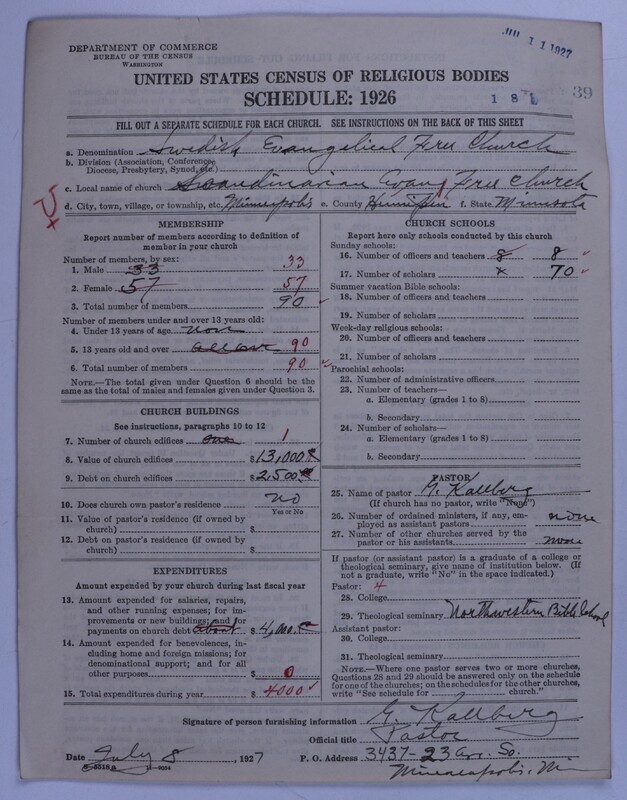 DEPARTMENT OF COMMERCE
BUREAU OF THE CENSUS
WASHINGTON
JUL 11 1927
UNITED STATES CENSUS OF RELIGIOUS BODIES
SCHEDULE: 1926
18
39
FILL OUT A SEPARATE SCHEDULE FOR EACH CHURCH. SEE INSTRUCTIONS ON THE BACK OF THIS SHEET
a. Denomination Swedish Evangelical Free Church
b. Division (Association, Conference, Diocese, Presbytery, Synod, etc.)
c. Local name of church Scandinavian Evang Free Church
d. City, town, village, or township, etc. Minneapolis e. County Hennepin f. State Minnesota
MEMBERSHIP
Report number of members according to definition of
member in your church
Number of members by sex:
1. Male 33 33
2. Female 57 57
3. Total number of members 90
Number of members under and over 13 years old:
4. Under 13 years of age non
5. 13 years old and over all over 90
6. Total number of members 90
NOTE.—The total given under Question 6 should be
the same as the total of males and females given under Question 3.
CHURCH BUILDINGS
See instructions, paragraphs 10 to 12
7. Number of church edifices one 1
8. Value of church edifices $ 13,000
9. Debt on church edifices $ 2,500
10. Does church own pastor's residence? no
Yes or No
11. Value of pastor's residence (if owned by
church) $
12. Debt on pastor's residence (if owned by
church) $
EXPENDITURES
Amount expended by your church during last fiscal year
13. Amount expended for salaries, repairs,
and other running expenses; for im-
provements or new buildings; and for
payments on church debt about $ 4,000.
14. Amount expended for benevolences, in-
cluding home and foreign missions; for
denominational support; and for all
other purposes $ 0
15. Total expenditures during year $ 4000
CHURCH SCHOOLS
Report here only schools conducted by this church
Sunday schools:
16. Number of officers and teachers 8 8
17. Number of scholars 70
Summer vacation Bible schools:
18. Number of officers and teachers
19. Number of scholars
Week-day religious schools:
20. Number of officers and teachers
21. Number of scholars
Parochial schools:
22. Number of administrative officers
23. Number of teachers—
a. Elementary (grades 1 to 8)
b. Secondary
24. Number of scholars—
a. Elementary (grades 1 to 8)
b. Secondary
PASTOR
25. Name of pastor G. Kallberg
(If church has no pastor, write "None")
26. Number of ordained ministers, if any, em-
ployed as assistant pastors none
27. Number of other churches served by the
pastor or his assistants none
If pastor (or assistant pastor) is a graduate of a college or
theological seminary, give name of institution below. (If
not a graduate, write "No" in the space indicated.)
Pastor: 4
28. College
29. Theological seminary Northwestern Bible School
Assistant pastor:
30. College
31. Theological seminary
NOTE.—Where one pastor serves two or more churches,
Questions 28 and 29 should be answered only on the schedule
for one of the churches; on the schedules for the other churches,
write "See schedule for church."
Signature of person furnishing information G. Kallberg
Official title Pastor
Date July 8, 1927 P. O. Address 3437-23 Av. So.
Minneapolis, Mi